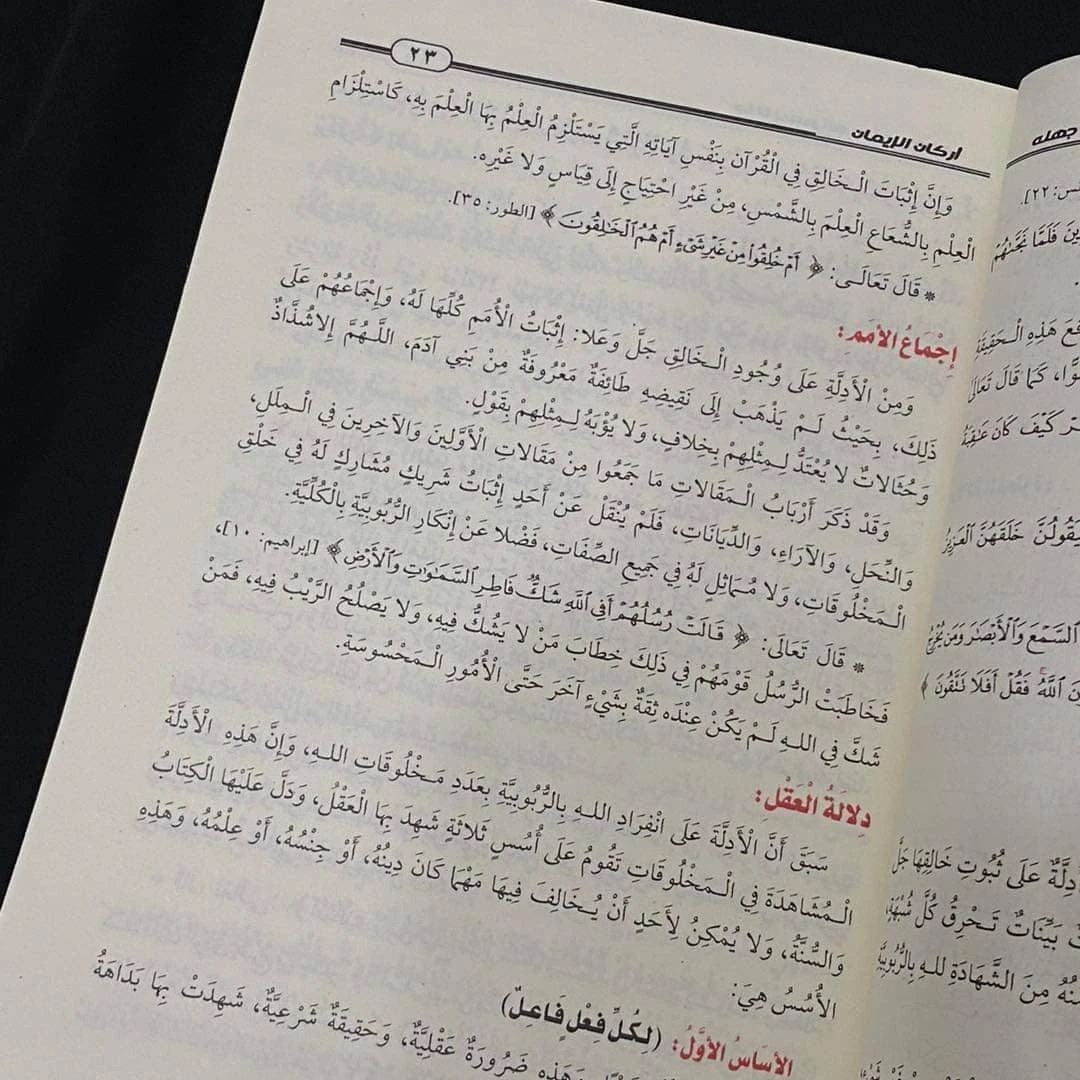 ٢٣
أركان الإيمان
وَإِنَّ إِثْبَاتَ الْخَالِقِ فِي الْقُرْآنِ بِنَفْسِ آيَاتِهِ الَّتِي يَسْتَلْزِمُ الْعِلْمُ بِهَا الْعِلْمَ بِهِ، كَاسْتِلْزَامِ
الْعِلْمِ بِالشُّعَاعِ الْعِلْمَ بِالشَّمْسِ، مِنْ غَيْرِ احْتِيَاجٍ إِلَى قِيَاسٍ وَلَا غَيْرِهِ.
* قَالَ تَعَالَى: ﴿ أَمْ خُلِقُوا۟ مِنْ غَيْرِ شَىْءٍ أَمْ هُمُ ٱلْخَـٰلِقُونَ ﴾ [الطور: ٣٥].
إِجْمَاعُ الْأُمَمِ:
وَمِنَ الْأَدِلَّةِ عَلَى وُجُودِ الْخَالِقِ جَلَّ وَعَلَا: إِثْبَاتُ الْأُمَمِ كُلِّهَا لَهُ، وَإِجْمَاعُهُمْ عَلَى
ذَلِكَ، بِحَيْثُ لَمْ يَذْهَبْ إِلَى نَقِيضِهِ طَائِفَةٌ مَعْرُوفَةٌ مِنْ بَنِي آدَمَ، اللَّهُمَّ إِلَّا شُذَّاذٌ
وَحُثَالَاتٌ لَا يُعْتَدُّ لِمِثْلِهِمْ بِخِلَافٍ، وَلَا يُؤْبَهُ لِمِثْلِهِمْ بِقَوْلٍ.
وَقَدْ ذَكَرَ أَرْبَابُ الْمَقَالَاتِ مَا جَمَعُوا مِنْ مَقَالَاتِ الْأَوَّلِينَ وَالْآخِرِينَ فِي الْمِلَلِ،
وَالنِّحَلِ، وَالْآرَاءِ، وَالدِّيَانَاتِ، فَلَمْ يُنْقَلْ عَنْ أَحَدٍ إِثْبَاتُ شَرِيكٍ مُشَارِكٍ لَهُ فِي خَلْقِ
الْمَخْلُوقَاتِ، وَلَا مُمَاثِلٍ لَهُ فِي جَمِيعِ الصِّفَاتِ، فَضْلًا عَنْ إِنْكَارِ الرُّبُوبِيَّةِ بِالْكُلِّيَّةِ.
* قَالَ تَعَالَى: ﴿ قَالَتْ رُسُلُهُمْ أَفِى ٱللَّهِ شَكٌّ فَاطِرِ ٱلسَّمَـٰوَٰتِ وَٱلْأَرْضِ ﴾ [إبراهيم: ١٠]،
فَخَاطَبَتْ الرُّسُلُ قَوْمَهُمْ فِي ذَلِكَ خِطَابَ مَنْ لَا يَشُكُّ فِيهِ، وَلَا يَصْلُحُ الرَّيْبُ فِيهِ، فَمَنْ
شَكَّ فِي اللهِ لَمْ يَكُنْ عِنْدَه ثِقَةٌ بِشَيْءٍ آخَرَ حَتَّى الْأُمُورِ الْمَحْسُوسَةِ.
دِلَالَةُ الْعَقْلِ:
سَبَقَ أَنَّ الْأَدِلَّةَ عَلَى انْفِرَادِ اللهِ بِالرُّبُوبِيَّةِ بِعَدَدِ مَخْلُوقَاتِ اللهِ، وَإِنَّ هَذِهِ الْأَدِلَّةَ
الْمُشَاهَدَةَ فِي الْمَخْلُوقَاتِ تَقُومُ عَلَى أُسُسٍ ثَلَاثَةٍ شَهِدَ بِهَا الْعَقْلُ، وَدَلَّ عَلَيْهَا الْكِتَابُ
وَالسُّنَّةُ، وَلَا يُمْكِنُ لِأَحَدٍ أَنْ يُخَالِفَ فِيهَا مَهْمَا كَانَ دِينُهُ، أَوْ جِنْسُهُ، أَوْ عِلْمُهُ، وَهَذِهِ
الْأُسُسُ هِيَ:
الأَسَاسُ الأَوَّلُ: (لِكُلِّ فِعْلٍ فَاعِلٌ)
وَهَذِهِ ضَرُورَةٌ عَقْلِيَّةٌ، وَحَقِيقَةٌ شَرْعِيَّةٌ، شَهِدَتْ بِهَا بَدَاهَةُ
جهله
٢٢].
فَلَمَّا نَجَّىٰهُمْ
هَذِهِ الْحَقِيقَةَ
كَمَا قَالَ تَعَالَى
كَيْفَ كَانَ عَـٰقِبَةُ
خَلَقَهُنَّ ٱلْعَزِيزُ
ٱلسَّمْعَ وَٱلْأَبْصَـٰرَ وَمَن يُخْرِجُ
ٱللَّهُ فَقُلْ أَفَلَا تَتَّقُونَ ﴾
عَلَى ثُبُوتِ خَالِقِهَا جَلَّ
بَيِّنَاتٌ تَحْرِقُ كُلَّ شُبْهَةٍ
مِنَ الشَّهَادَةِ للهِ بِالرُّبُوبِيَّةِ